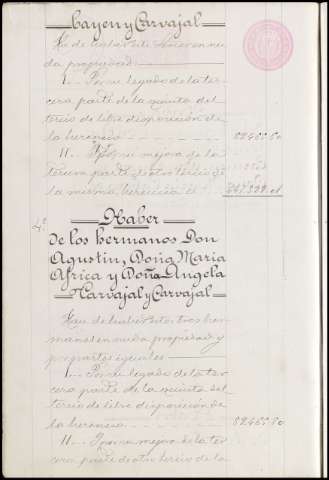 Cayen y Carvajal
Ha de haber este Señor en nu
da propiedad:
I. Por su legado de la ter
cera parte de la quinta del
tercio de libre disposición de
la herencia
II. Y por su mejora de la
tercera parte de otro tercio de
la misma herencia
4º
Haber
de los hermanos Don
Agustin, Doña Maria
Africa y Doña Angela
Carvajal y Carvajal
Han de haber estos tres her
manos en nuda propiedad y
por partes iguales
I. Por su legado de la ter
cera parte de la quinta del
tercio de libre disposición de
la herencia
II. Y por su mejora de la ter
cera parte de otro tercio de la